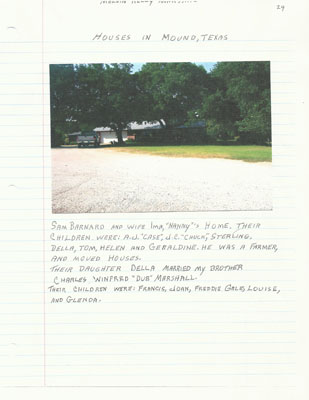 29
HOUSES IN MOUND, TEXAS
SAM BARNARD AND WIFE IMA, "HANNY"'S HOME. THEIR
CHILDREN WERE: A.J. "CASE", J.C. "CHUCK", STERLING.
DELLA, TOM, HELEN AND GERALDINE. HE WAS A FARMER,
AND MOVED HOUSES.
THEIR DAUGHTER DELLA MARRIED MY BROTHER
CHARLES WINFRED "DUB" MARSHALL.
THEIR CHILDREN WERE: FRANCIS, JOAN, FREDDIE GALE, LOUISE,
AND GLENDA.